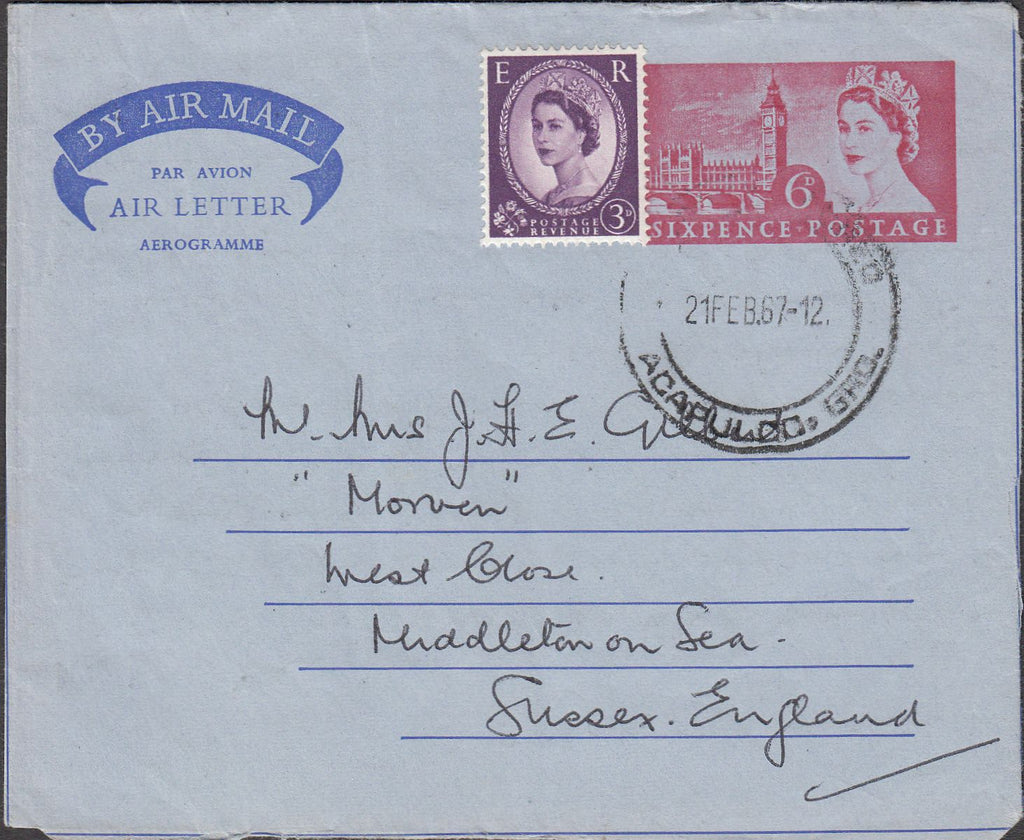 BY AIR MAIL
PAR AVION
AIR LETTER
AEROGRAMME
E R
POSTAGE
REVENUE 3D
6D
SIXPENCE·POSTAGE
21FEB.67-12.
ACAPULCO. GRO.
Mr. Mrs J.H.E.
"Morven"
West Close.
Middleton on Sea -
Sussex. England